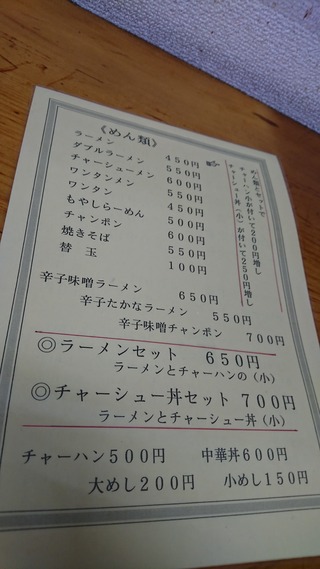 《めん類》
ラーメン 450円
ダブルラーメン 550円
チャーシューメン 600円
ワンタンメン 550円
ワンタン 450円
もやしらーめん 500円
チャンポン 600円
焼きそば 550円
替 玉 100円
めん類とセットで
チャーハン小が付いて200円増し
チャーシュー丼(小)が付いて250円増し
辛子味噌ラーメン 650円
辛子たかなラーメン 550円
辛子味噌チャンポン 700円
◎ラーメンセット 650円
ラーメンとチャーハンの(小)
◎チャーシュー丼セット 700円
ラーメンとチャーシュー丼(小)
チャーハン500円 中華丼600円
大めし200円 小めし150円